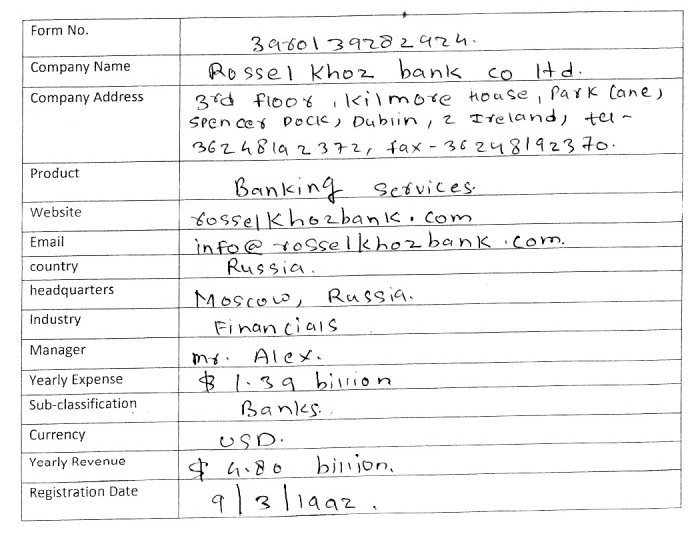 Form No. 3960139282924.
Company Name Rossel Khoz bank co ltd.
Company Address 3rd floor, Kilmore House, Park Lane,
Spencer Dock, Dublin, 2 Ireland, tel -
36248192372, fax - 36248192370.
Product Banking services.
Website rosselkhozbank.com
Email info@rosselkhozbank.com.
country Russia.
headquarters Moscow, Russia.
Industry Financials
Manager mr. Alex.
Yearly Expense $ 1.39 billion
Sub-classification Banks.
Currency USD.
Yearly Revenue $ 4.80 billion.
Registration Date 9/3/1992.